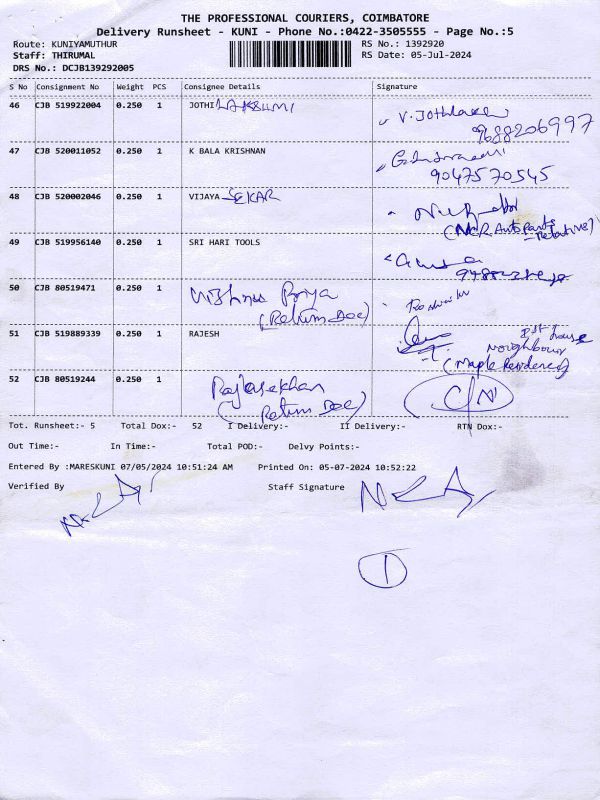 THE PROFESSIONAL COURIERS, COIMBATORE
Delivery Runsheet - KUNI - Phone No.:0422-3505555 - Page No.:5
Route: KUNIYAMUTHUR RS No.: 1392920
Staff: THIRUMAL RS Date: 05-Jul-2024
DRS No.: DCJB139292005
S No Consignment No Weight PCS Consignee Details Signature
46 CJB 519922004 0.250 1 JOTHI LAKSHMI V. Jothilakshmi
9688206997
47 CJB 520011052 0.250 1 K BALA KRISHNAN
9047570545
48 CJB 520002046 0.250 1 VIJAYA SEKAR
(NCR Auto Parts
- Relative)
49 CJB 519956140 0.250 1 SRI HARI TOOLS
50 CJB 80519471 0.250 1 Vishnu Priya
(Return Doc)
51 CJB 519889339 0.250 1 RAJESH
house
Neighbour
(Maple Residency)
52 CJB 80519244 0.250 1 Rajasekhan
(Return Doc) C/N
Tot. Runsheet:- 5 Total Dox:- 52 I Delivery:- II Delivery:- RTN Dox:-
Out Time:- In Time:- Total POD:- Delvy Points:-
Entered By :MARESKUNI 07/05/2024 10:51:24 AM Printed On: 05-07-2024 10:52:22
Verified By Staff Signature
1